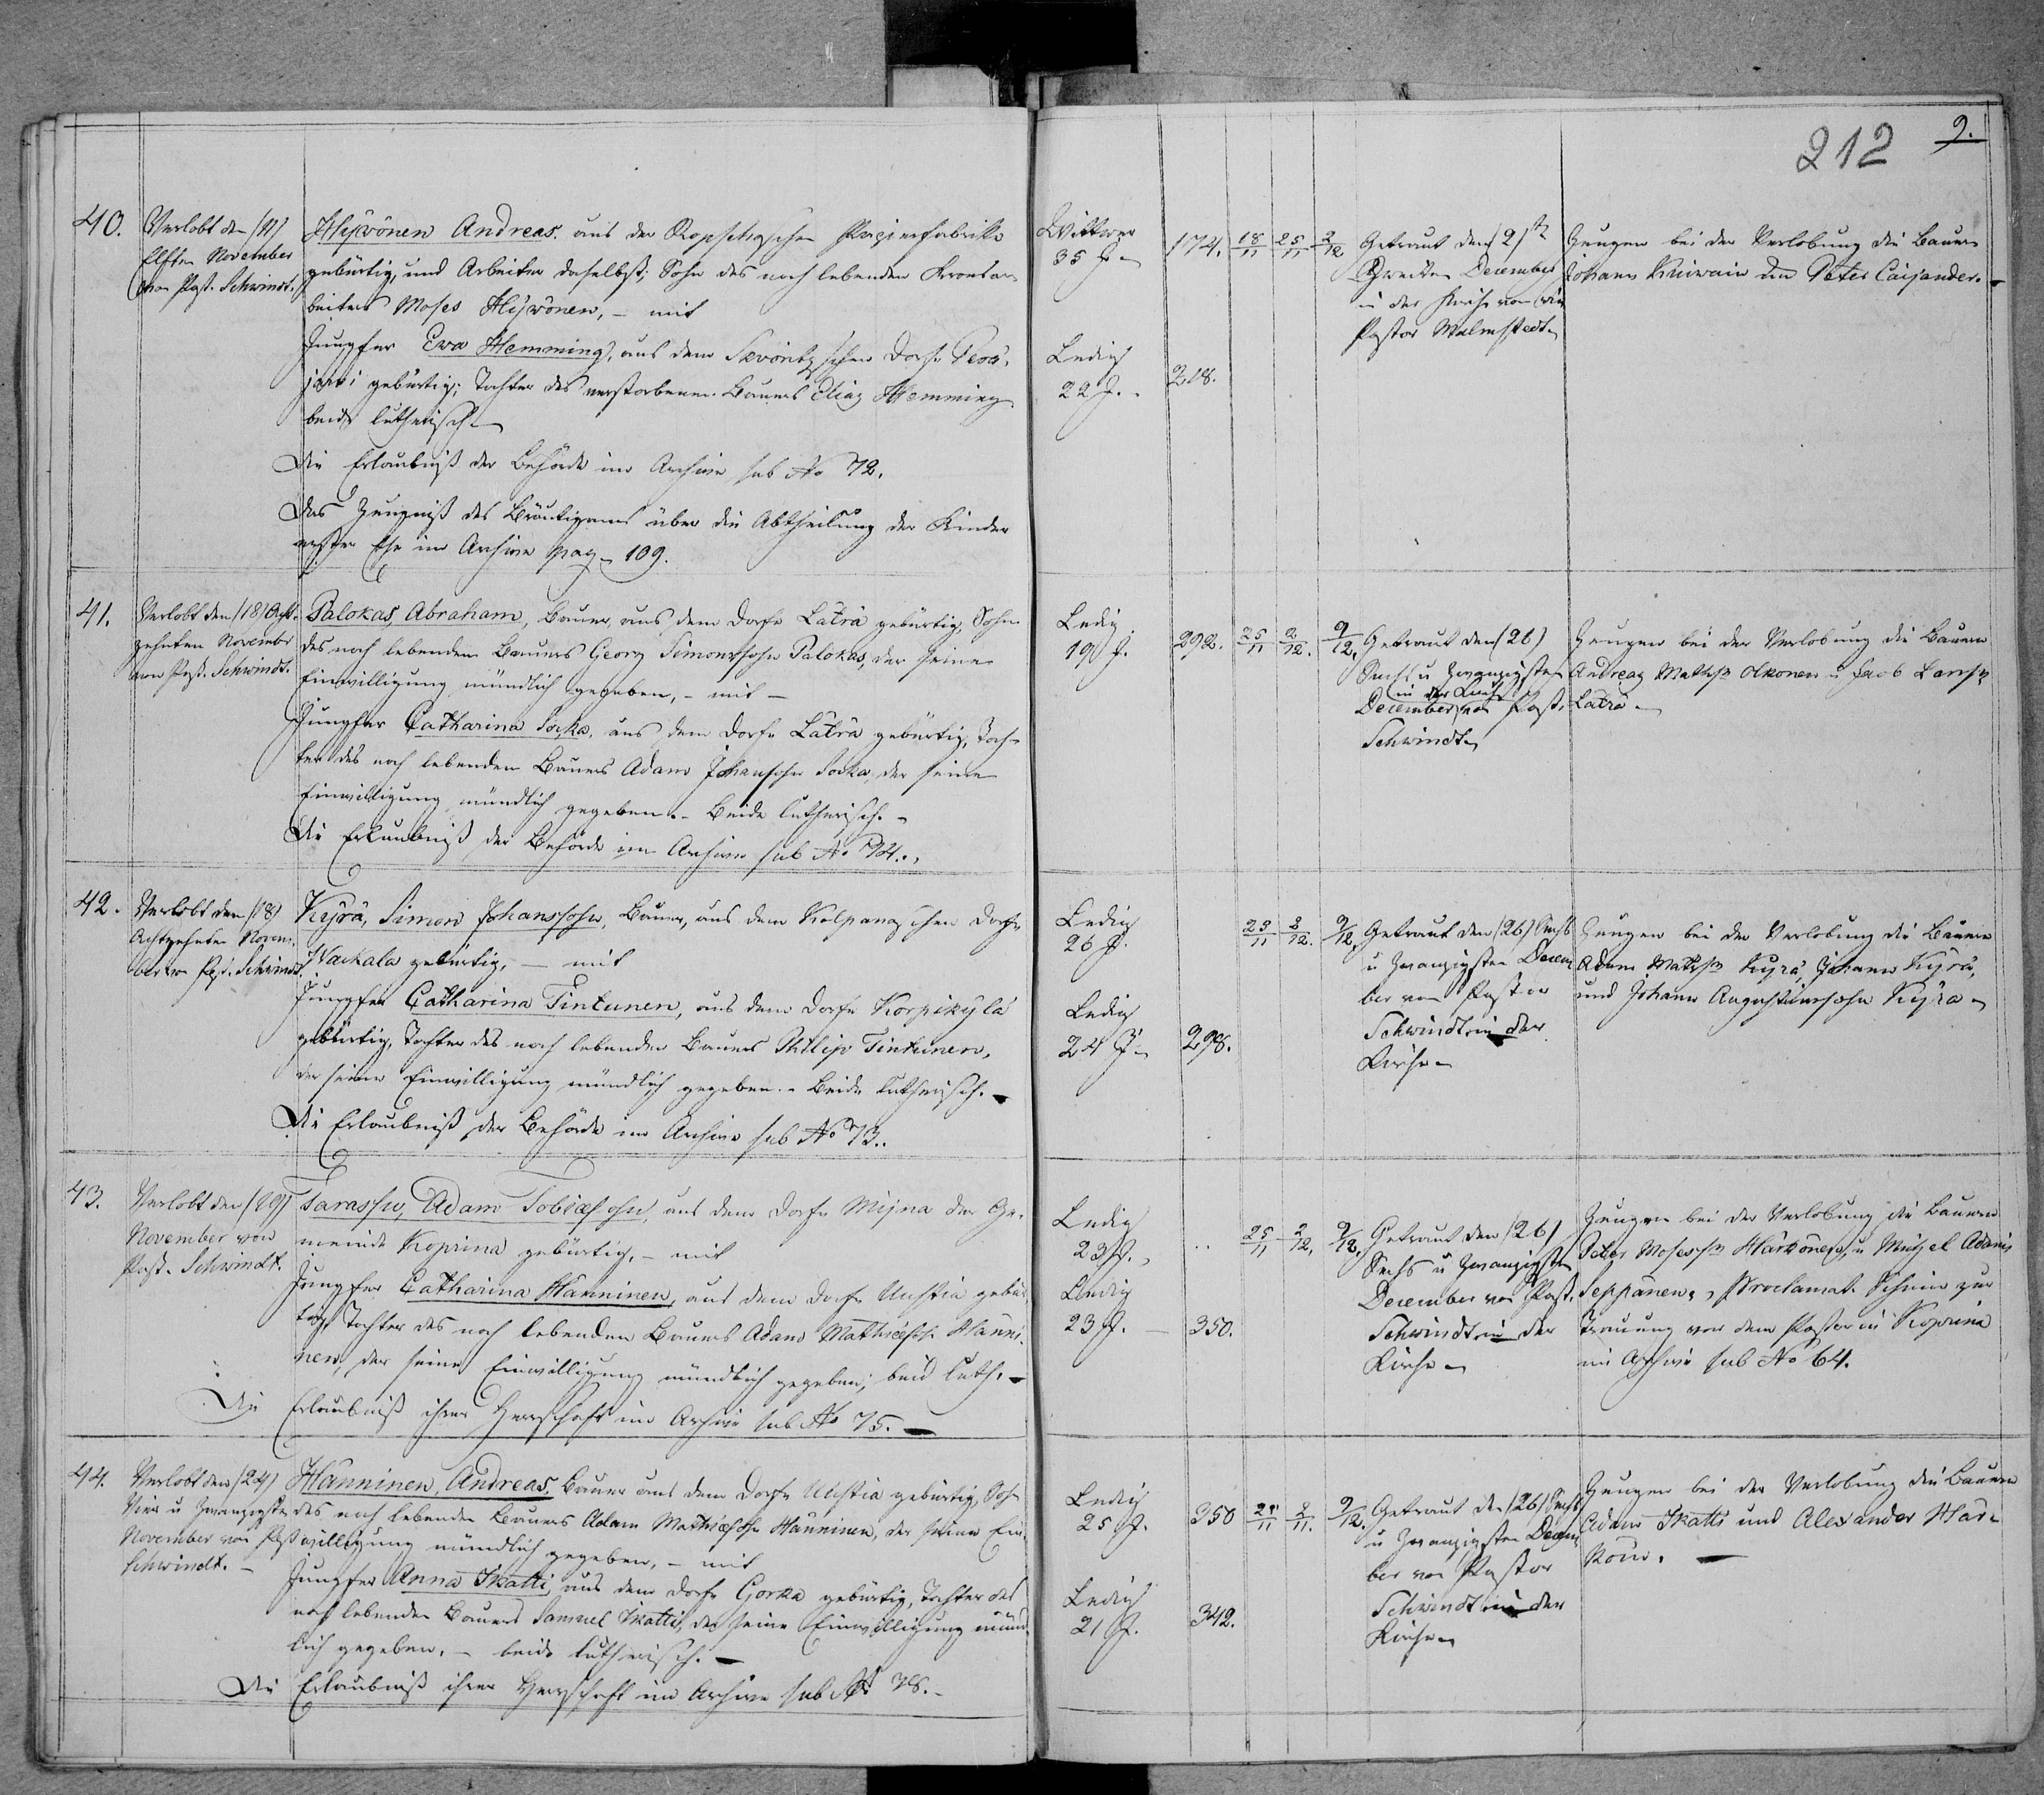 212 9.
40.
Verlobt den (11)
Elften November
von Past. Schwindt.
Hÿvönen Andreas. aus der Ropschaschen Papierfabrike
gebürtig, und Arbeiter daselbst; Sohn des noch lebenden
beiters Moses Hÿvönen, – mit
Jungfer Eva Hemming, aus dem Skvoritzschen Dorfe
jarvi gebürtig; Tochter des verstorbenen Bauers Elias Hemming
beide lutherisch. –
Die Erlaubniß der Behörde im Archive sub No 72.
Das Zeugniß des Bräutigams über die Abtheilung der Kinder
erster Ehe im Archive pag. 109.
Wittwer
35 J. –
174.
18/11 25/11 2/12
Ledig
22 J. –
218.
Getraut den (2)
Zweiten December
in der Kirche von
Pastor Malmstedt
Zeugen bei der Verlobung die Bauern
Johann und Peter Caijander. –
41.
Verlobt den (18) Acht-
zehnten November
von Past. Schwindt.
Palokas, Abraham, Bauer, aus dem Dorfe Läträ gebürtig, Sohn
des noch lebenden Bauers Georg Simonssohn Palokas, der seine
Einwilligung mündlich gegeben, – mit –
Jungfer Catharina Sokka, aus dem Dorfe Läträ gebürtig, Toch-
ter des noch lebenden Bauers Adam Johansohn Sokka, der seine
Einwilligung mündlich gegeben. – Beide lutherisch. –
Die Erlaubniß der Behörde im Archive sub No 74.
Ledig
19 J.
292.
25/11 2/12. 9/12.
Getraut den (26)
Sechs u Zwanzigsten
in der Kirche
December von Past.
Schwindt
Zeugen bei der Verlobung die Bauern
Andreas Maths Okonen u Jacob
Läträ –
42.
Verlobt den (18)
Achtzehnten Novem-
ber von Past. Schwindt.
Kÿrä, Simon Johanssohn, Bauer, aus dem Kolpanaschen Dorfe
Wackala gebürtig, – mit
Jungfer Catharina Tintunen, aus dem Dorfe Korpikÿlä
gebürtig, Tochter des noch lebenden Bauers Philip Tintunen,
der seine Einwilligung mündlich gegeben. – Beide lutherisch. –
Die Erlaubniß der Behörde im Archive sub No 73.
Ledig
26 J.
25/11 2/12. 9/12.
Ledig
24 J –
298.
Getraut den (26) Sechs
u Zwanzigsten Decem
ber von Pastor
Schwindt in der
Kirche –
Zeugen bei der Verlobung die Bauern
Adam Maths Kÿrä, Johann Kÿrä,
und Johann Augustinussohn Kÿrä –
43.
Verlobt den (19)
November von
Past. Schwindt.
Tarassu, Adam Tobiassohn, aus dem Dorfe Mijna der Ge-
meinde Koprina gebürtig, – mit
Jungfer Catharina Hänninen, aus dem Dorfe Uustia gebür-
tig, Tochter des noch lebenden Bauers Adam Hänni-
nen, der seine Einwilligung mündlich gegeben; beide luth. –
Die Erlaubniß ihrer Herrschaft im Archive sub No 75. –
Ledig
23 J.
..
25/11 2/12. 9/12.
Ledig
23 J. –
350.
Getraut den (26)
Sechs u Zwanzigsten
December von Past.
Schwindt in der
Kirche –
Zeugen bei der Verlobung die Bauern
Peter Härkönen, u Michel Adams
Seppänen, Proclamat. Schein zur
Trauung von dem Pastor in Koprina
im Archive sub No 64.
44.
Verlobt den (24)
Vier u Zwanzigsten
November von Past
Schwindt. –
Hänninen, Andreas, Bauer aus dem Dorfe Uustia gebürtig, Sohn
des noch lebenden Bauers Adam Mathiassohn Hänninen, der seine Ein-
willigung mündlich gegeben, – mit
Jungfer Anna Skatti, aus dem Dorfe Gorka gebürtig, Tochter des
noch lebenden Bauers Samuel Skatti, der seine Einwilligung münd-
lich gegeben. – beide lutherisch. –
Die Erlaubniß ihrer Herrschaft im Archive sub No 78. –
Ledig
25 J.
350
25/11 2/11. 9/12.
Ledig
21 J.
342.
Getraut den (26) Sechs
u Zwanzigsten Decem
ber von Pastor
Schwindt in der
Kirche –
Zeugen bei der Verlobung die Bauern
Adam Skatti und Alexander Här-
könn. –